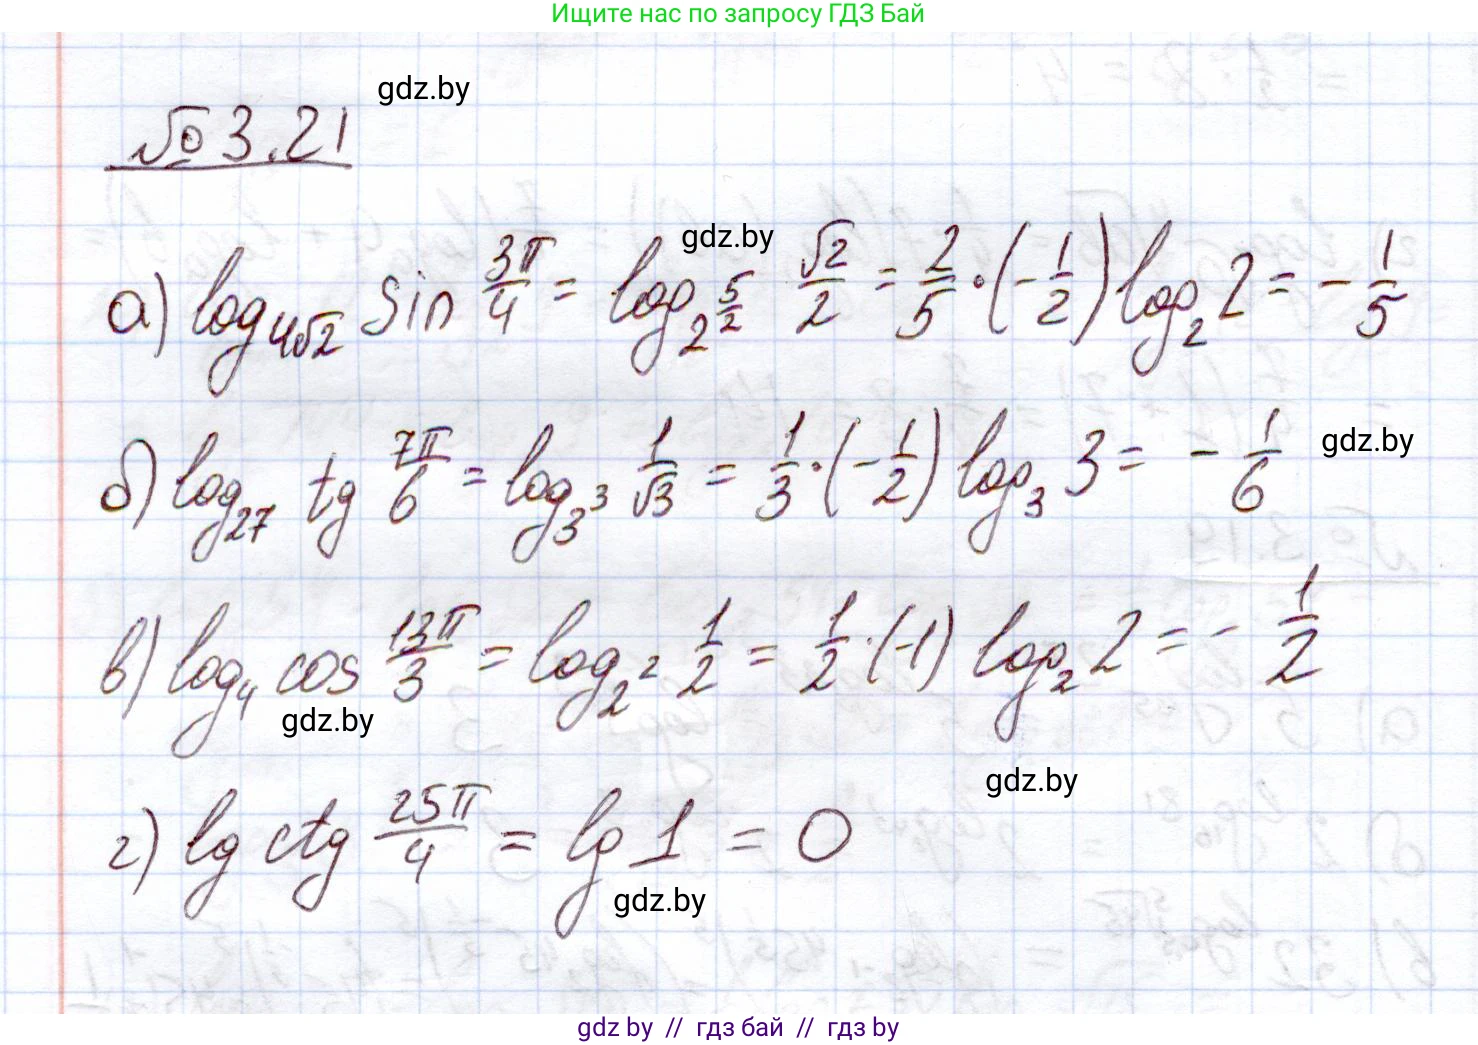 Ищите нас по запросу ГДЗ Бай
gdz.by
№ 3.21
gdz.by
а) log_{4√2} sin 3π/4 = log_{2^{5/2}} √2/2 = 2/5 · (-1/2) log_2 2 = -1/5
gdz.by
б) log_{27} tg 7π/6 = log_{3^3} 1/√3 = 1/3 · (-1/2) log_3 3 = -1/6
в) log_4 cos 13π/3 = log_{2^2} 1/2 = 1/2 · (-1) log_2 2 = -1/2
gdz.by
gdz.by
г) lg ctg 25π/4 = lg 1 = 0
gdz.by
gdz by // гдз бай // гдз by